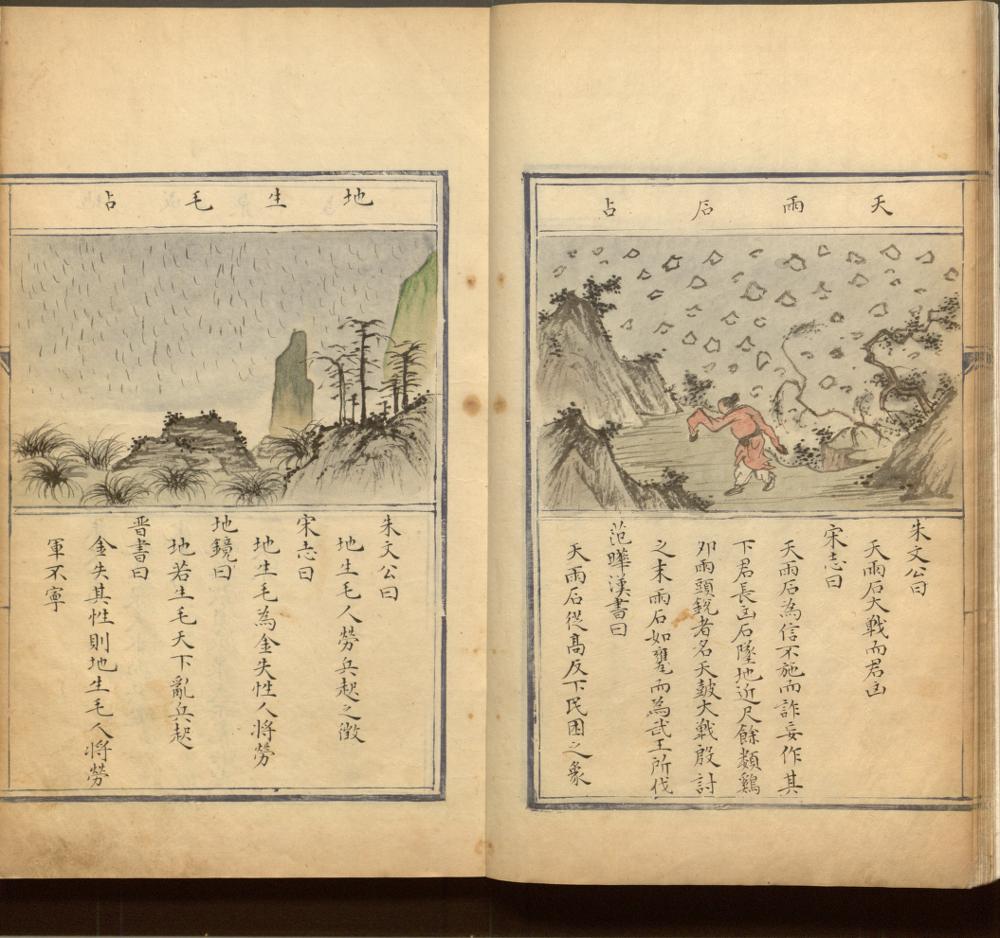 天雨石占
朱文公曰
天雨石大戰而君凶
宋志曰
天雨石為信不施而詐妄作其
下君長凶石墜地近尺餘類鷄
卵雨頭銳者名天鼓大戰殷討
之末雨石如甕而為武王所伐
范曄漢書曰
天雨石從高反下民困之象
地生毛占
朱文公曰
地生毛人勞兵起之徵
宋志曰
地生毛為金失性人將勞
地鏡曰
地若生毛天下亂兵起
晋書曰
金失其性則地生毛人將勞
軍不寧